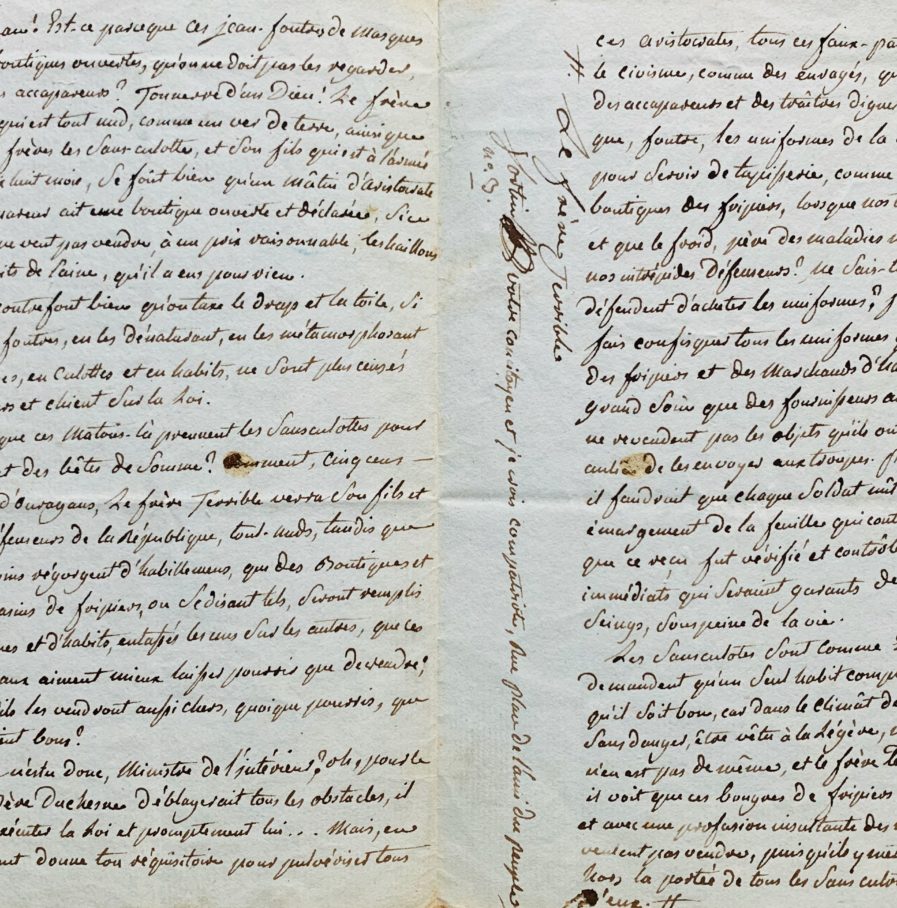 Est-ce parceque ces jean-foutres de Masques
boutiques ouvertes, qu'on ne doit pas les regarder,
accapareurs? Tonnerre d'un Dieu! Le frère
qui est tout nud, comme un ver de terre, ainsi que
frères les Sans-culotte, et son fils qui est à l'armée
huit mois, Se fout bien qu'un mâtin d'aristocrate
ait une boutique ouverte et déclarée, Si
ne veut pas vendre à un prix raisonnable, les haillons
de laine, qu'il a eus pour rien.
fout bien qu'on taxe le drap et la toile, Si
foutres, en les dénaturant, en les métamorphosant
en culottes et en habits, ne sont plus censés
et chient Sur la Loi.
que ces Matous-là prennent les Sansculottes pour
des bêtes de Somme? Comment, cinq cens
d'ouragans, Le frère Terrible verra Son fils et
défenseurs de la République, tout-nuds, tandis que
régorgent d'habillemens, que des Boutiques et
de fripiers, ou Sedisant tels, Seront remplis
et d'habits, entassés les uns Sur les autres, que ces
aiment mieux laisser pourrir que de vendre,
ils les vendront aussi chers, quoique pourris, que
bons?
donc, Ministre de l'intérieur? oh, pour le
Père Duchesne déblayerait tous les obstacles, il
exécuter la Loi et promptement lui... Mais, en
donne ton réquisitoire pour pulvériser tous
Le frère Terrible
no. 3.
votre concitoyen et je crois compatriote, Rue place de l'ami du peuple,
ces aristocrates, tous ces faux-pa
le civisme, comme des enragés, qu
des accapareurs et des traîtres dignes
que, foutre, les uniformes de la
pour Servir de tapisserie, comme
boutiques des fripiers, lorsque nos
et que le froid, père des maladies
nos intrépides défenseurs? ne Sais-t
défendent d'acheter les uniformes?
fais confisquer tous les uniformes
des fripiers et des Marchands d'ha
grand Soin que des fournisseurs
ne revendent pas les objets qu'ils on
de les envoyer aux troupes.
il faudrait que chaque Soldat mît
émargement de la feuille qui cont
que ce reçu fut vérifié et contrôl
immédiats qui Seraient garants de
Seings, Sous peine de la vie.
Les Sansculotes Sont comme
demandent qu'un Seul habit comp
qu'il Soit bon, car dans le climât de
Sans danger, être vêtu à la légère,
n'en est pas de même, et le frère Te
il voit que ces bougres de fripiers
et avec une profusion insultante des
veulent pas vendre, puisqu'ils y met
hors la portée de tous les Sansculot
d'eux.